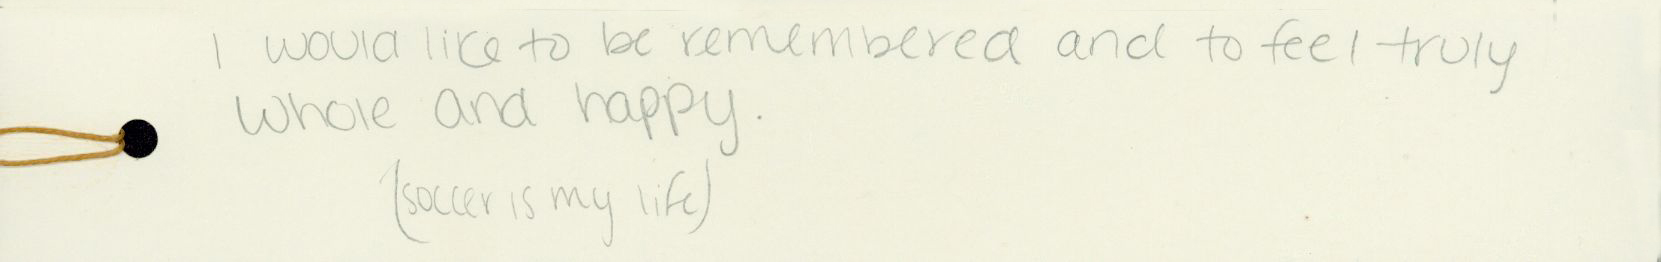 I would like to be remembered and to feel truly
whole and happy.
(soccer is my life)